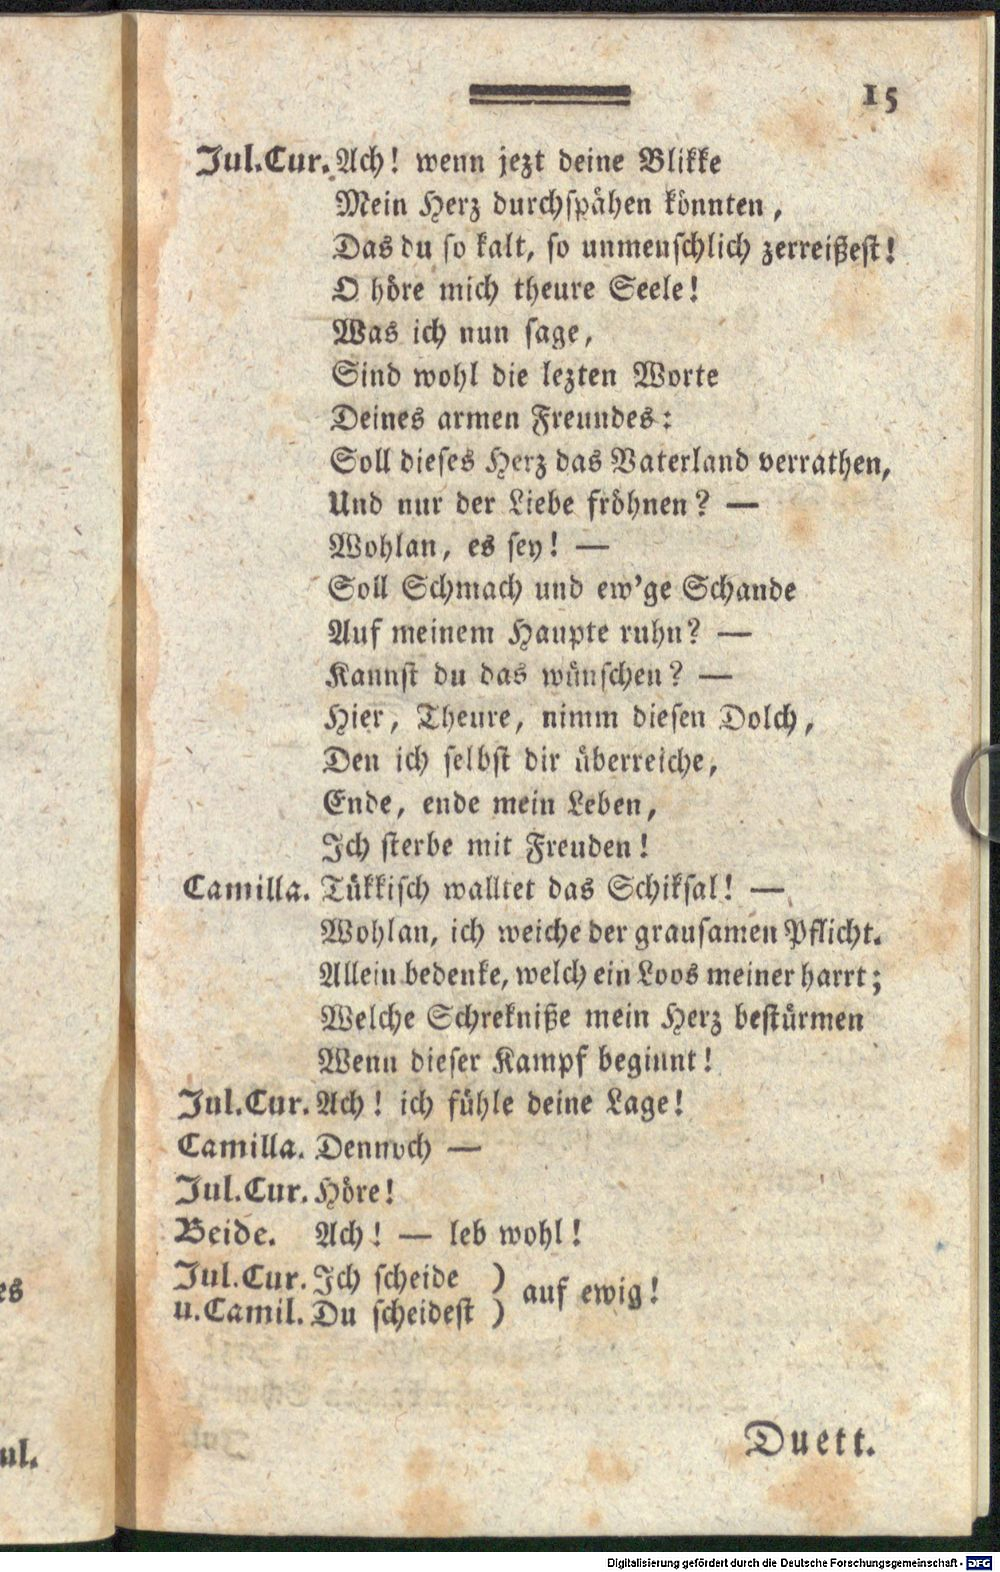 15
Jul. Cur. Ach! wenn jezt deine Blikke
Mein Herz durchspähen könnten,
Das du so kalt, so unmenschlich zerreißest!
O höre mich theure Seele!
Was ich nun sage,
Sind wohl die lezten Worte
Deines armen Freundes:
Soll dieses Herz das Vaterland verrathen,
Und nur der Liebe fröhnen? —
Wohlan, es sey! —
Soll Schmach und ew'ge Schande
Auf meinem Haupte ruhn? —
Kannst du das wünschen? —
Hier, Theure, nimm diesen Dolch,
Den ich selbst dir überreiche,
Ende, ende mein Leben,
Ich sterbe mit Freuden!
Camilla. Tükkisch walltet das Schiksal! —
Wohlan, ich weiche der grausamen Pflicht.
Allein bedenke, welch ein Loos meiner harrt;
Welche Schrekniße mein Herz bestürmen
Wenn dieser Kampf beginnt!
Jul. Cur. Ach! ich fühle deine Lage!
Camilla. Dennoch —
Jul. Cur. Höre!
Beide. Ach! — leb wohl!
Jul. Cur. Ich scheide ) auf ewig!
u. Camil. Du scheidest )
Duett.
es
ul.
Digitalisierung gefördert durch die Deutsche Forschungsgemeinschaft - DFG